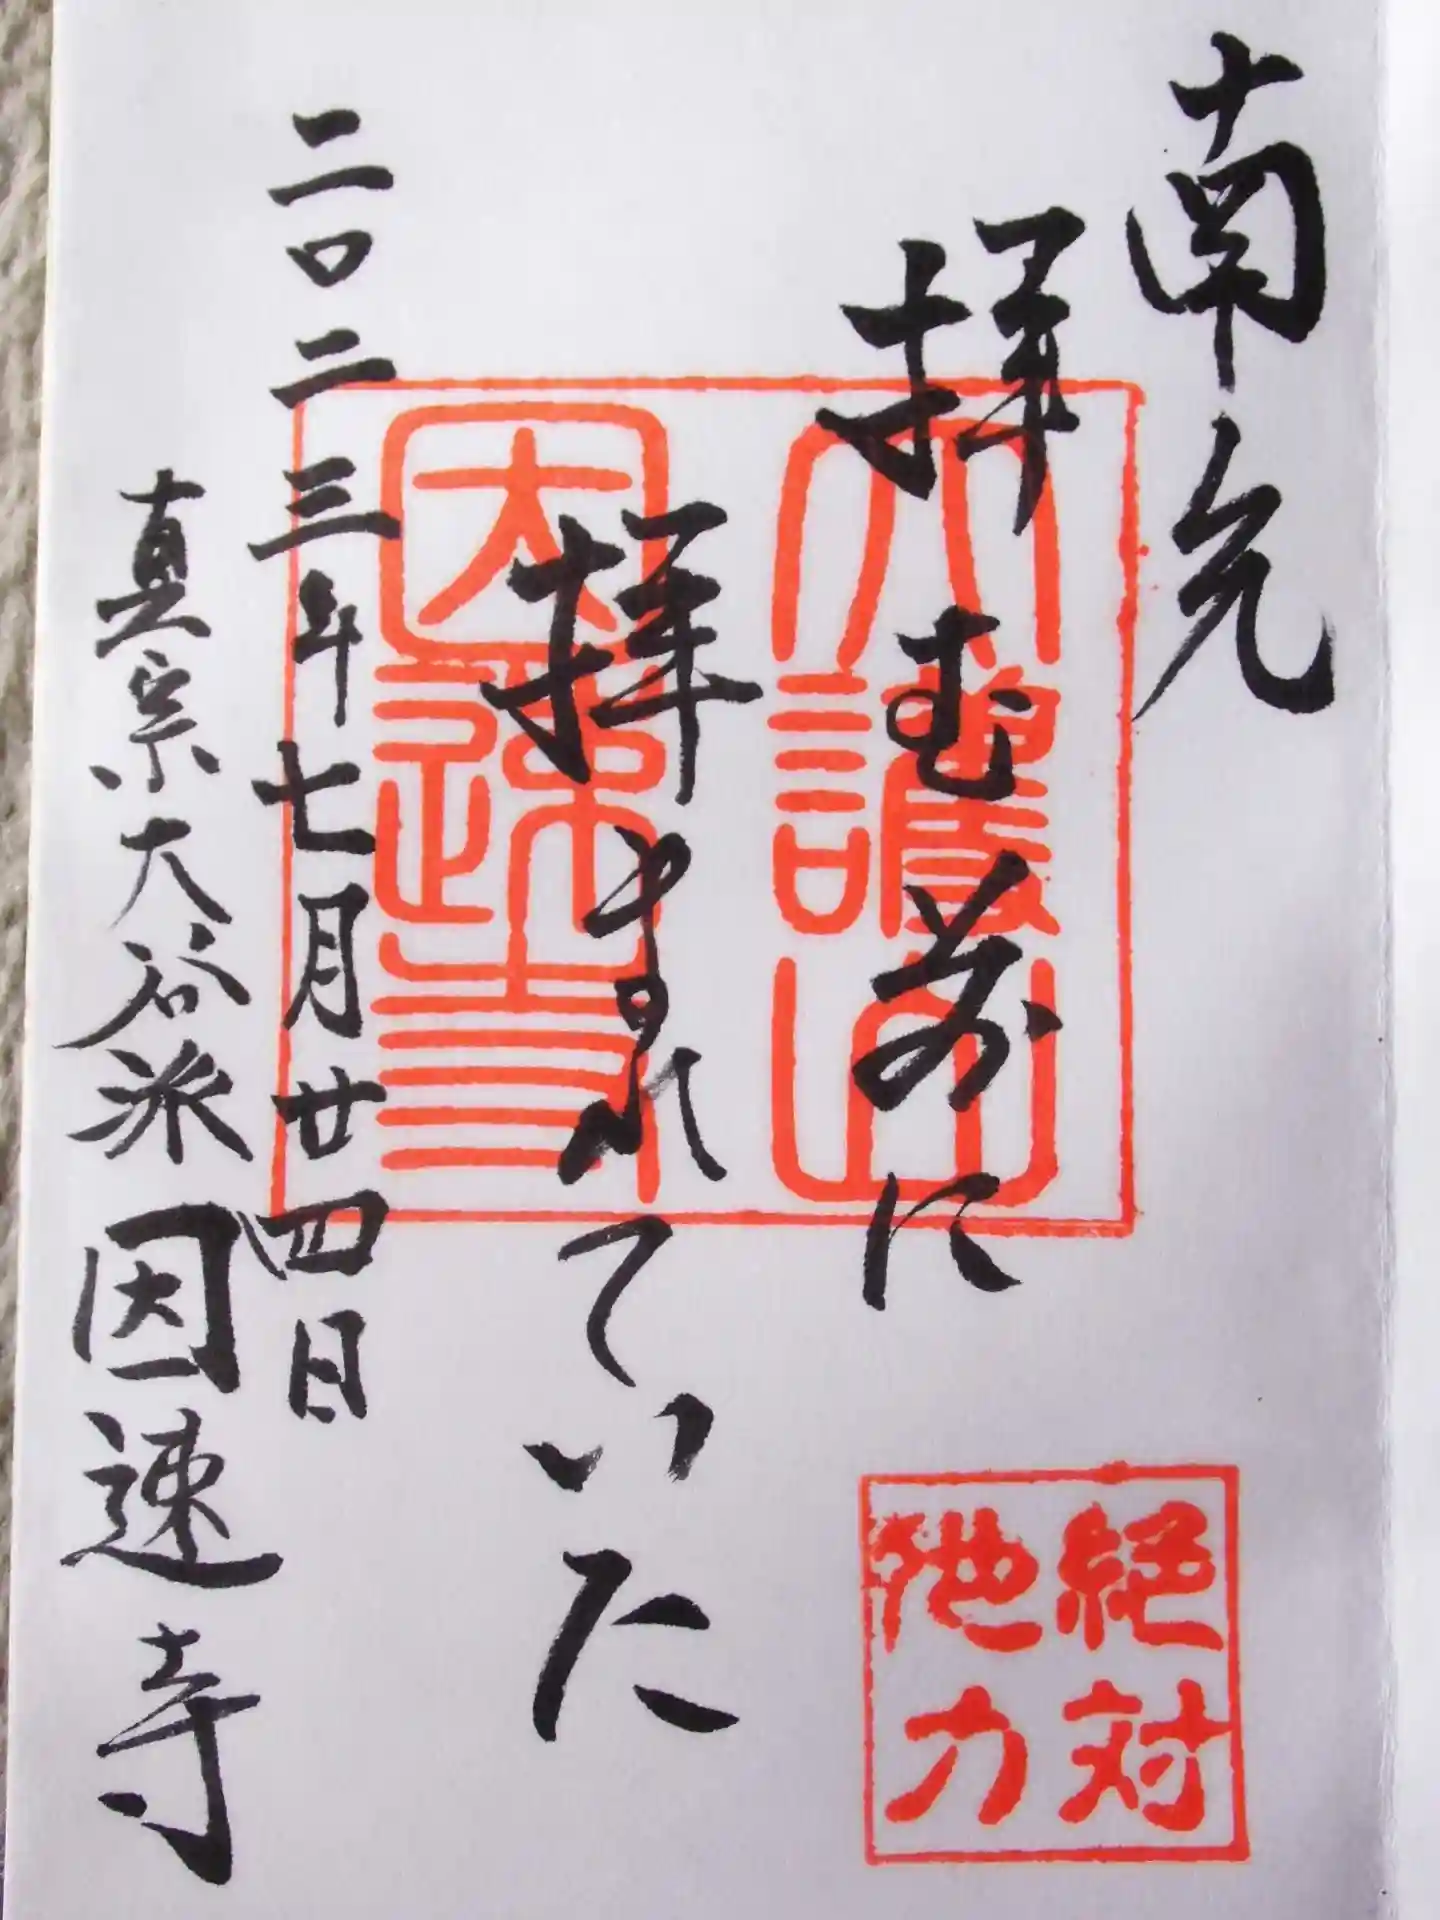 南无
拝む前に
拝まれていた
二〇二三年七月廿四日
真宗大谷派 因速寺
大護山
因速寺
絶対
他力